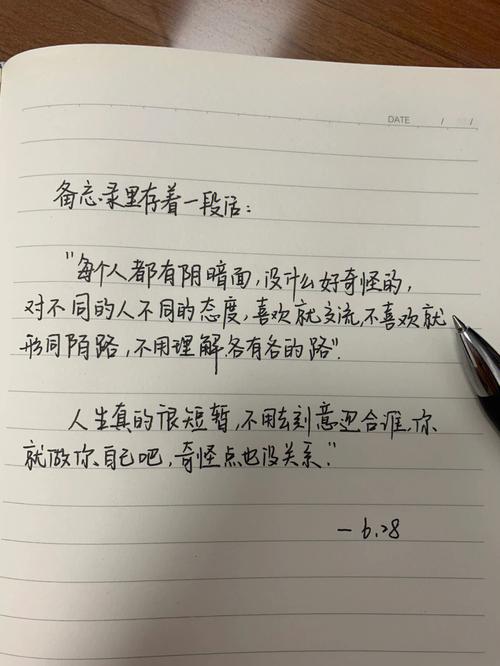 DATE / /
备忘录里存着一段话:
"每个人都有阴暗面,没什么好奇怪的,
对不同的人不同的态度,喜欢就交流,不喜欢就
形同陌路,不用理解,各有各的路".
人生真的很短暂,不用去刻意迎合谁,你
就做你自己吧,奇怪点也没关系."
— 6.28